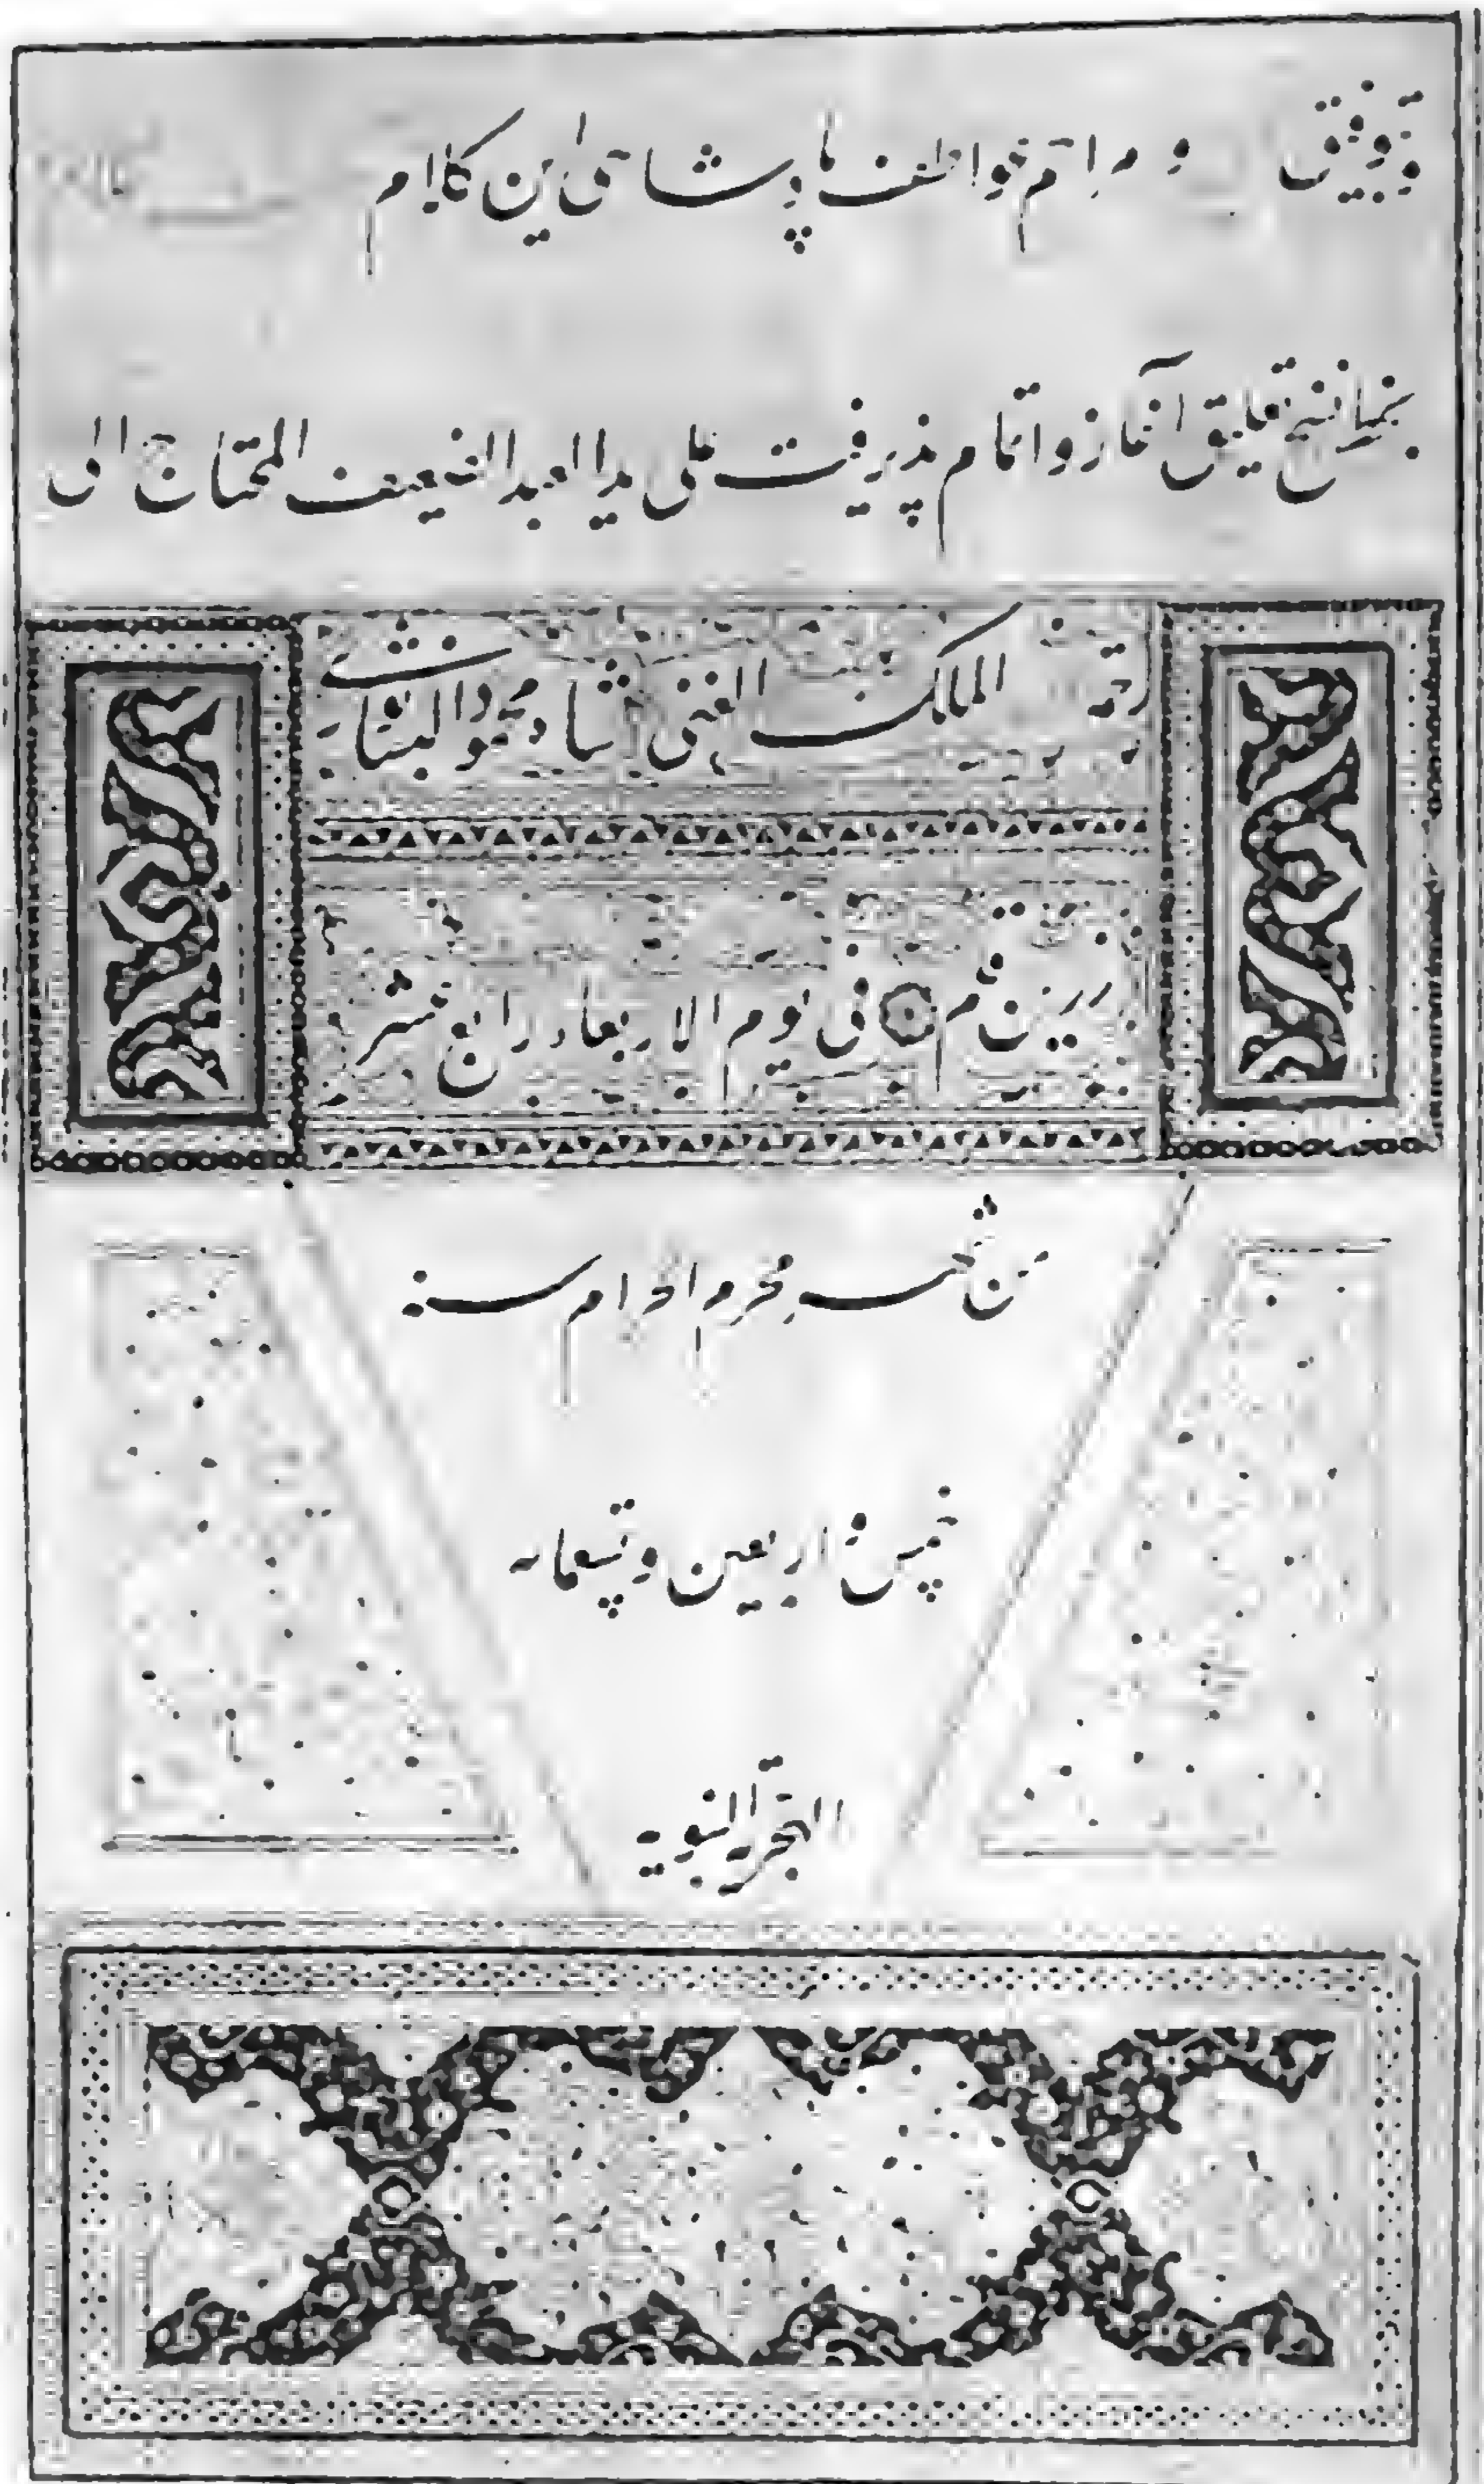 توفیق و مراحم عواطف پادشاهی این کلام
بخط نسخ تعلیق آغاز و اتمام پذیرفت علی ید العبد الضعیف المحتاج الی
رحمة الملك الغنی شاه محمود النیشابوری
فی یوم الاربعاء رابع عشر
من شهر محرم الحرام سنة
خمس و اربعین و تسعمایه
الهجریة النبویه